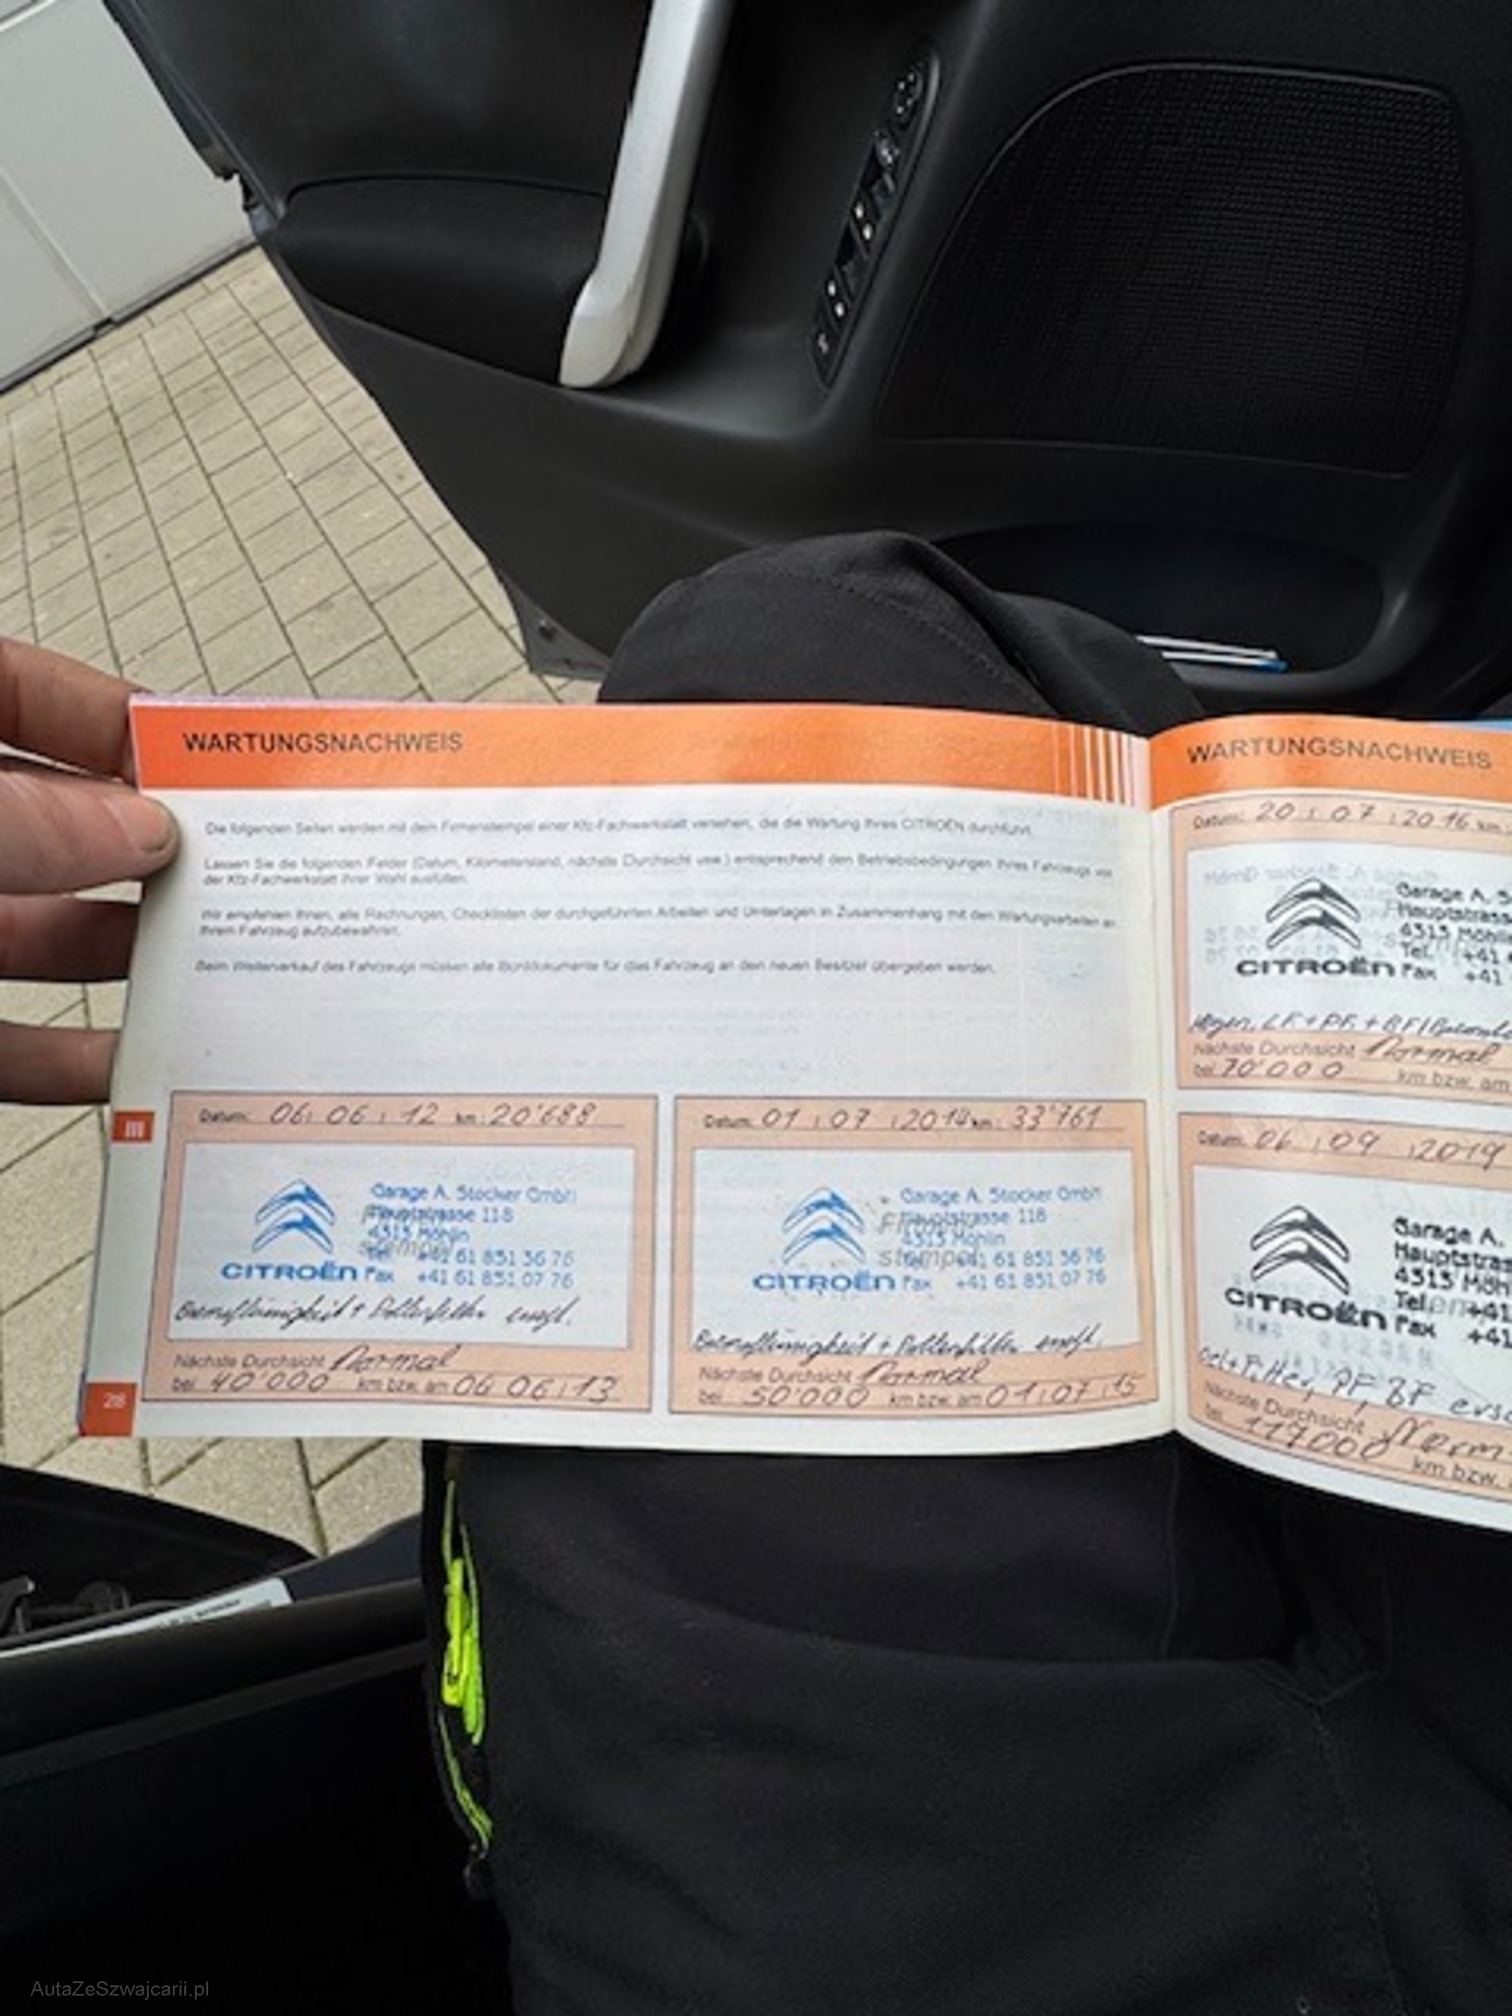 WARTUNGSNACHWEIS
Die folgenden Seiten werden mit dem Firmenstempel einer Kfz-Fachwerkstatt versehen, die die Wartung Ihres CITROËN durchführt.
Lassen Sie die folgenden Felder (Datum, Kilometerstand, nächste Durchsicht usw.) entsprechend den Betriebsbedingungen Ihres Fahrzeugs von
der Kfz-Fachwerkstatt Ihrer Wahl ausfüllen.
Wir empfehlen Ihnen, alle Rechnungen, Checklisten der durchgeführten Arbeiten und Unterlagen in Zusammenhang mit den Wartungsarbeiten an
Ihrem Fahrzeug aufzubewahren.
Beim Weiterverkauf des Fahrzeugs müssen alle Borddokumente für das Fahrzeug an den neuen Besitzer übergeben werden.
III
Datum: 06 06 12 km: 20'688
Garage A. Stocker GmbH
Hauptstrasse 118
4313 Möhlin
Tel. +41 61 851 36 76
CITROËN Fax +41 61 851 07 76
Bremsflüssigkeit + Pollenfilter
Nächste Durchsicht Normal
bei 40'000 km bzw. am 06 06 13
28
Datum: 01 07 2014 km: 33'761
Garage A. Stocker GmbH
Hauptstrasse 118
4313 Möhlin
Firmenstempel +41 61 851 36 76
CITROËN Fax +41 61 851 07 76
Bremsflüssigkeit + Pollenfilter
Nächste Durchsicht Normal
bei 50'000 km bzw. am 01 07 15
WARTUNGSNACHWEIS
Datum: 20 07 2016 km
Garage A. S
Hauptstrasse
4313 Möhlin
Tel. +41
CITROËN Fax +41
LF + PF + BF
Nächste Durchsicht Normal
bei 70'000 km bzw. am
Datum: 06 09 2019
Garage A.
Hauptstras
4313 Möh
Tel. +41
CITROËN Fax +41
Oel + Filter, PF, BF ers
Nächste Durchsicht Norm
bei 117000 km bzw.
AutaZeSzwajcarii.pl